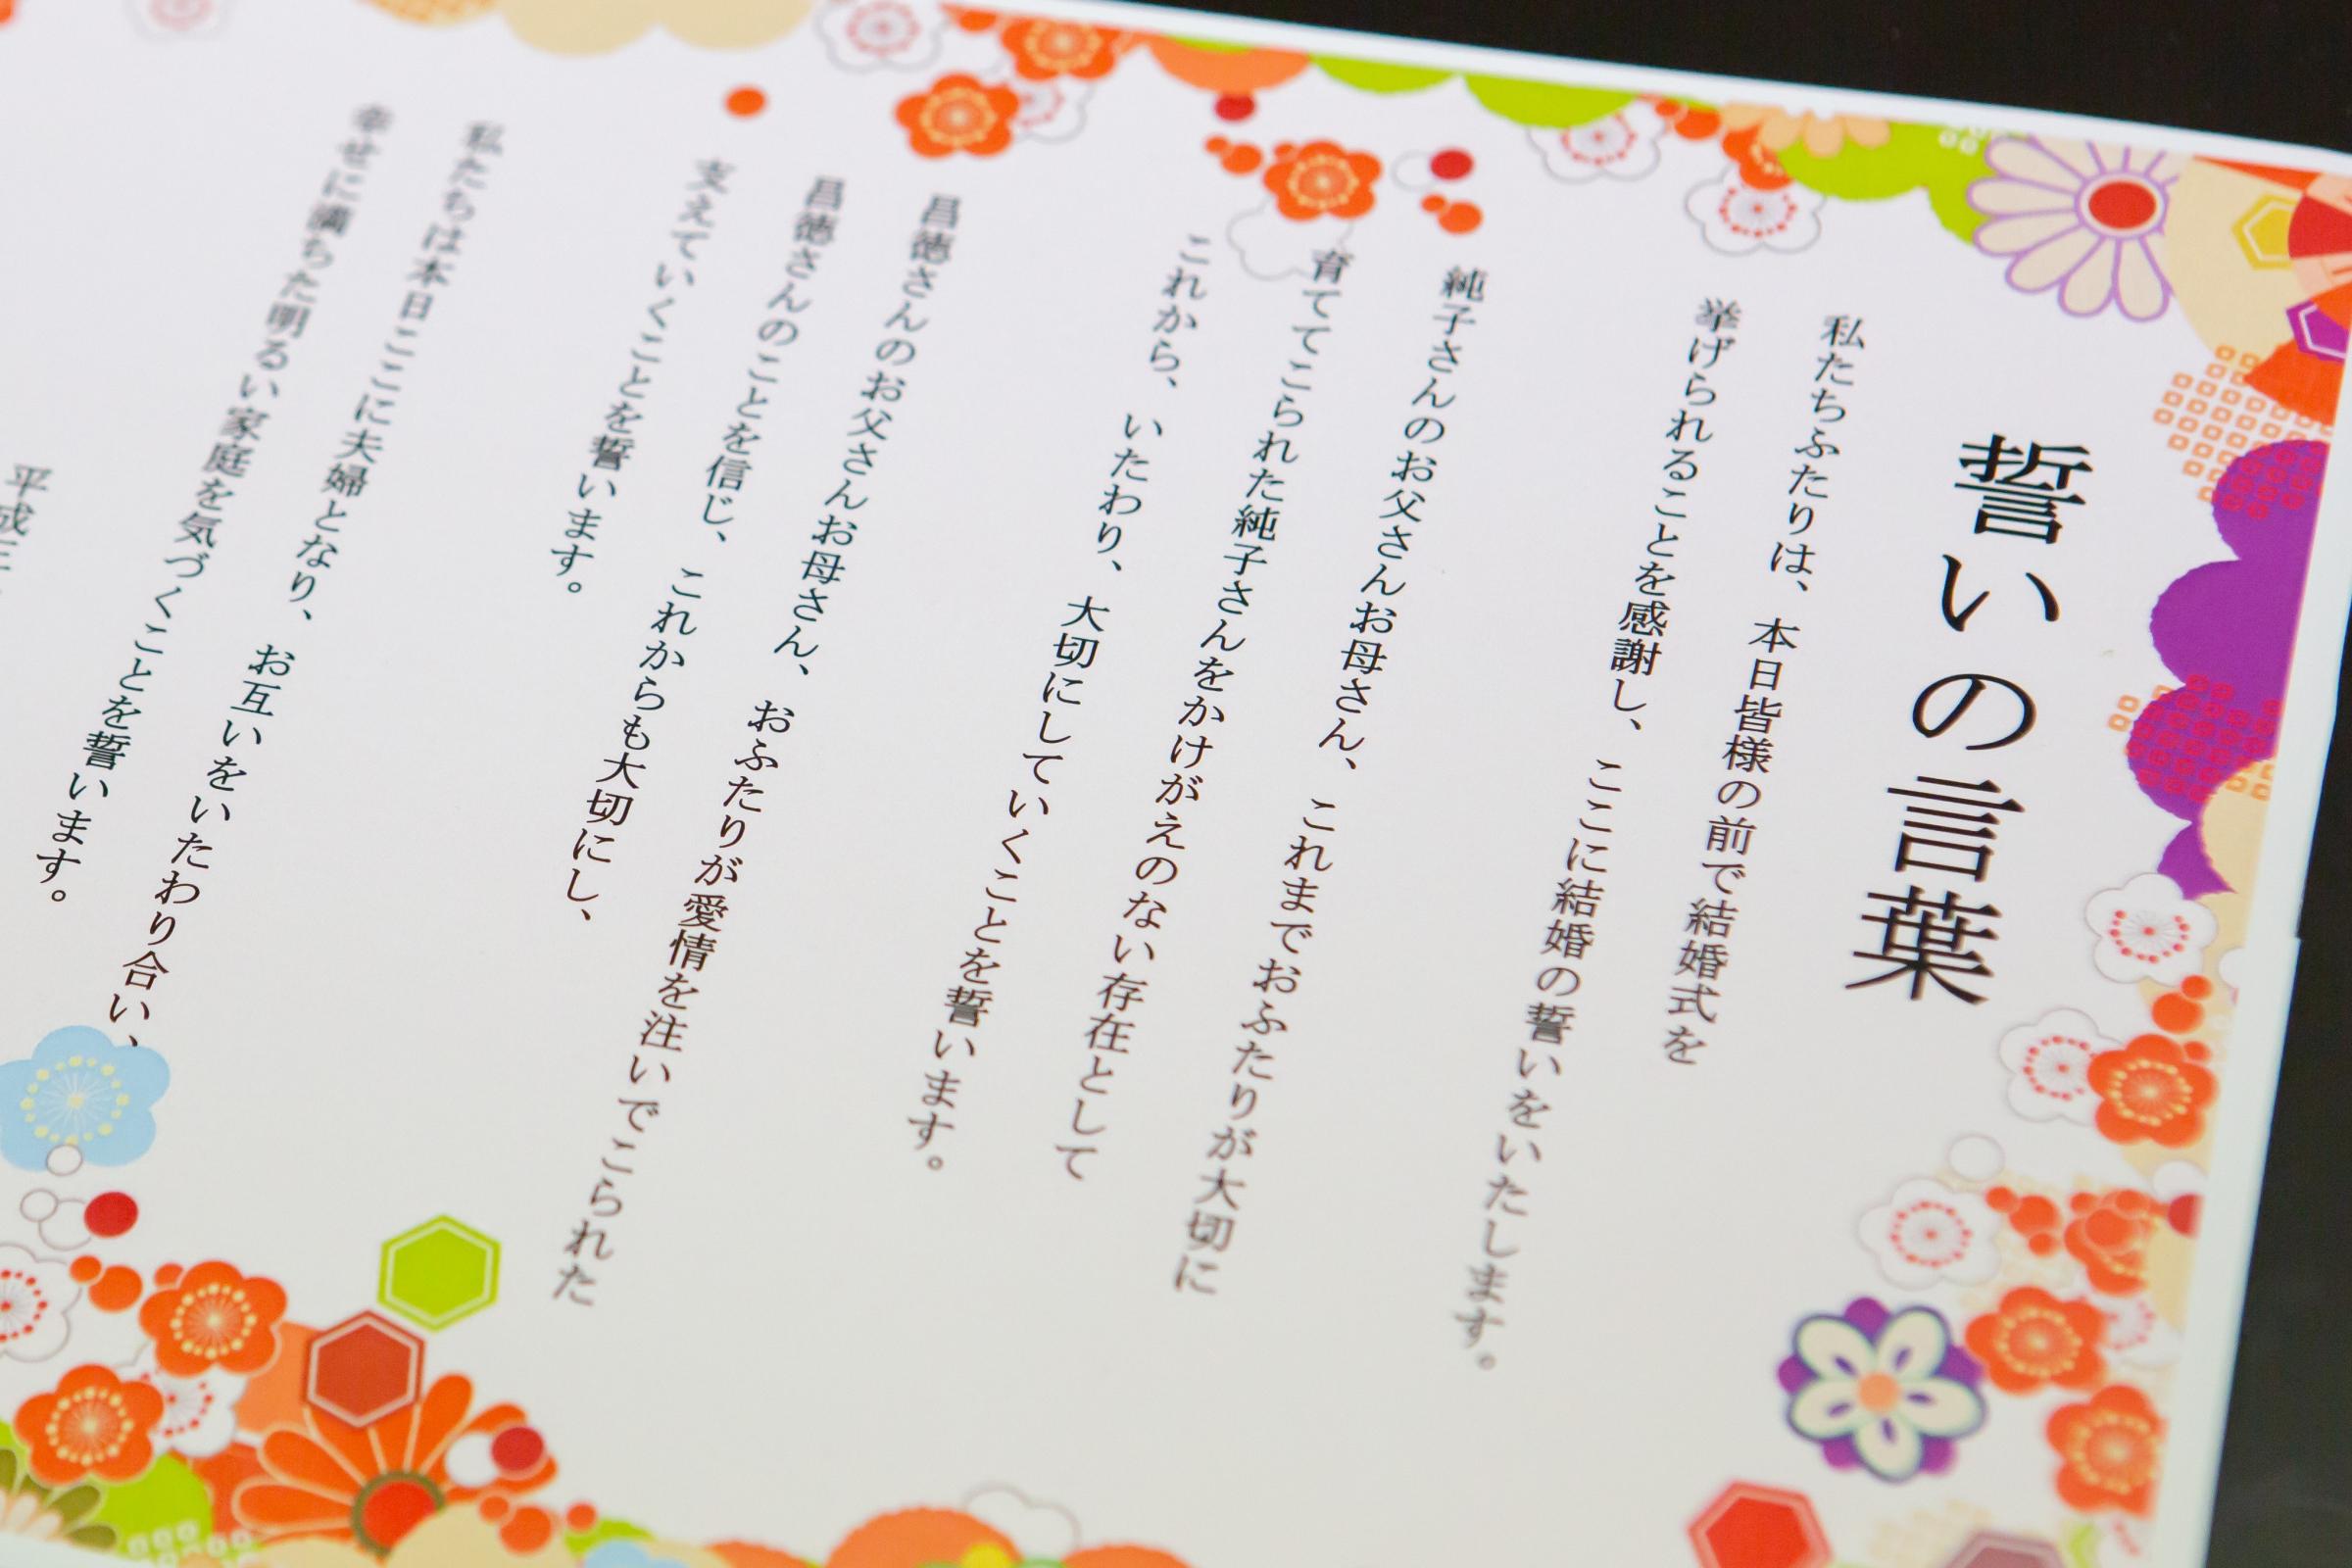 誓いの言葉
私たちふたりは、本日皆様の前で結婚式を
挙げられることを感謝し、ここに結婚の誓いをいたします。
純子さんのお父さんお母さん、これまでおふたりが大切に
育ててこられた純子さんをかけがえのない存在として
これから、いたわり、大切にしていくことを誓います。
昌徳さんのお父さんお母さん、おふたりが愛情を注いでこられた
昌徳さんのことを信じ、これからも大切にし、
支えていくことを誓います。
私たちは本日ここに夫婦となり、お互いをいたわり合い、
幸せに満ちた明るい家庭を気づくことを誓います。
平成